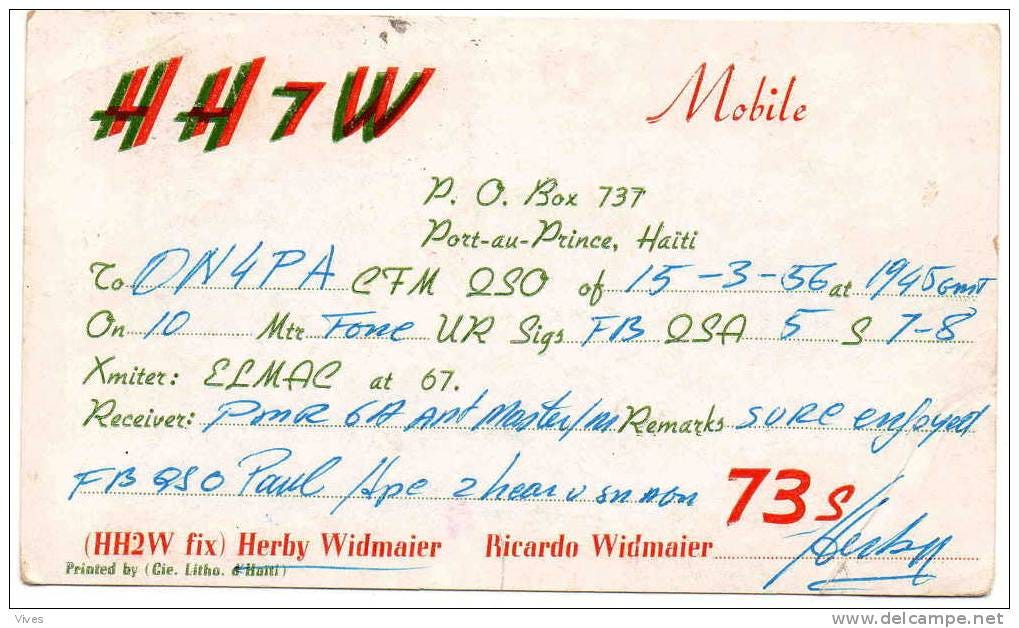 HH7W Mobile
P. O. Box 737
Port-au-Prince, Haïti
To ON4PA CFM QSO of 15-3-56 at 1945 GMT
On 10 Mtr Fone UR Sigs FB QSA 5 S 7-8
Xmiter: ELMAC at 67.
Receiver: PMR 6A Ant Master/m Remarks sure enjoyed
FB QSO Paul Hpe 2 hear u sn agn 73s
(HH2W fix) Herby Widmaier Ricardo Widmaier Herby
Printed by (Cie. Litho. d'Haiti)
Vives www.delcampe.net